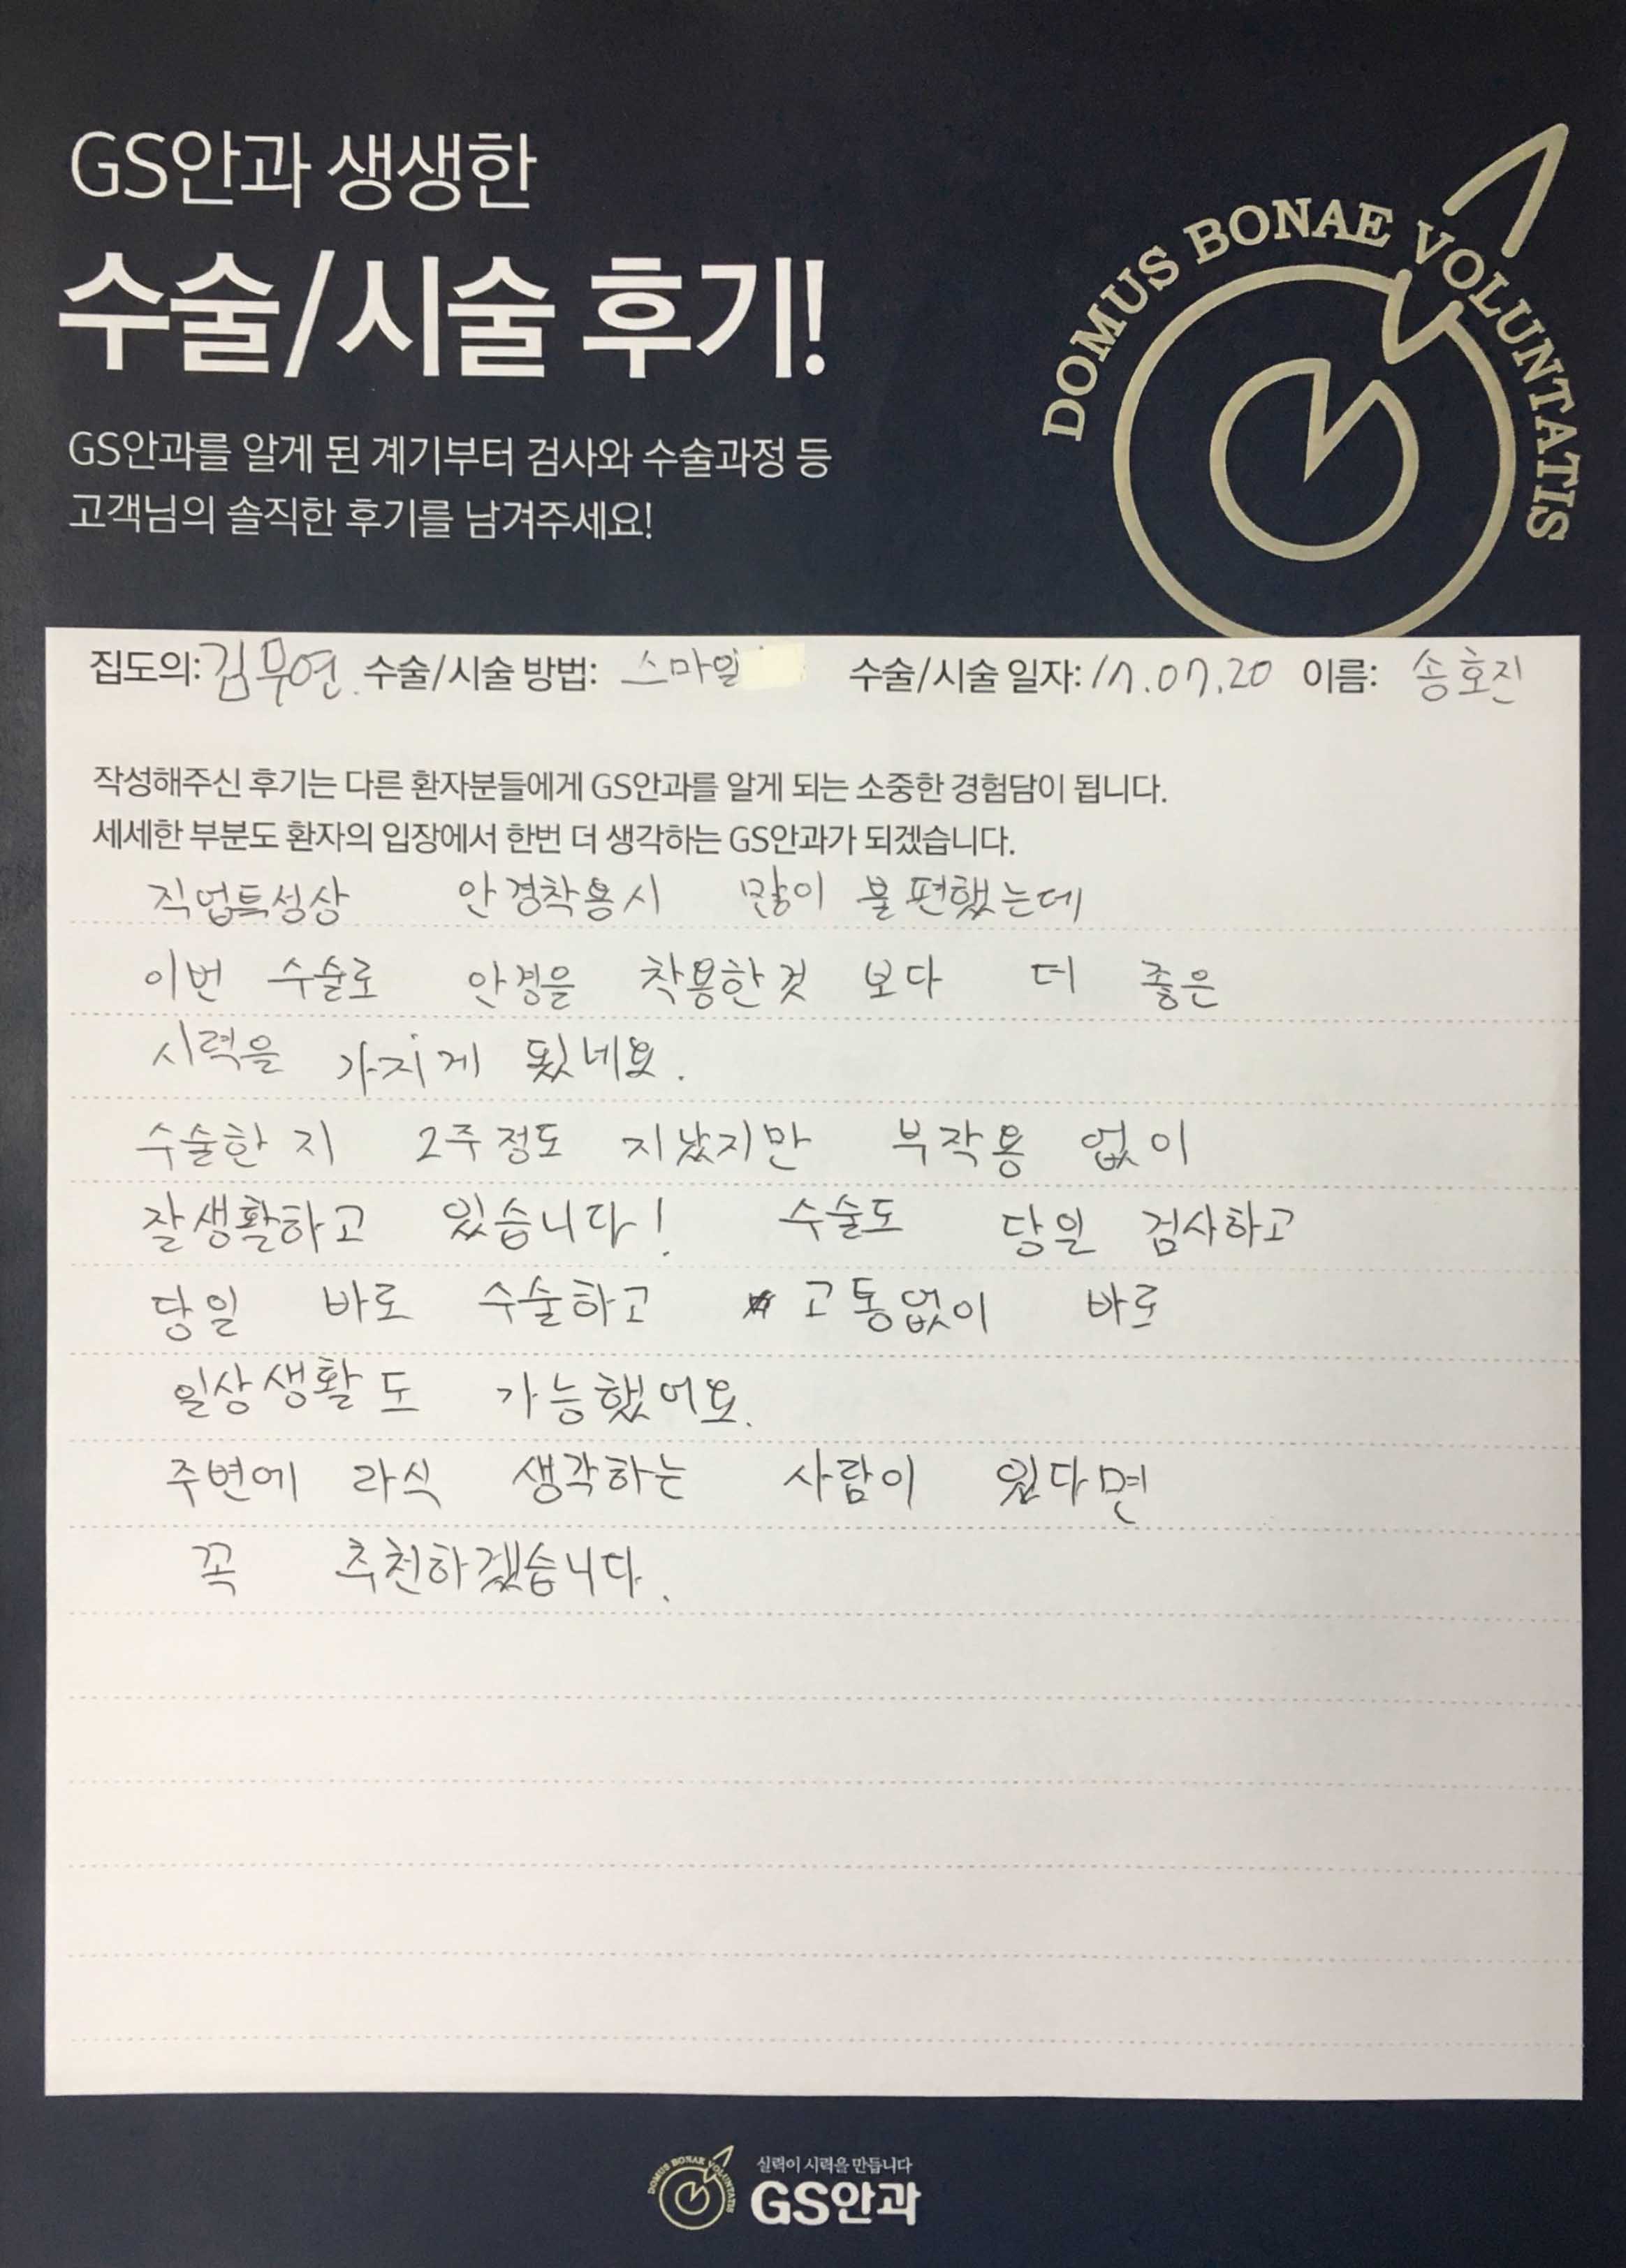 GS안과 생생한
수술/시술 후기!
GS안과를 알게 된 계기부터 검사와 수술과정 등
고객님의 솔직한 후기를 남겨주세요!
DOMUS BONAE VOLUNTATIS
집도의: 김무연. 수술/시술 방법: 스마일 수술/시술 일자: 17.07.20 이름: 송호진
작성해주신 후기는 다른 환자분들에게 GS안과를 알게 되는 소중한 경험담이 됩니다.
세세한 부분도 환자의 입장에서 한번 더 생각하는 GS안과가 되겠습니다.
직업특성상 안경착용시 많이 불편했는데
이번 수술로 안경을 착용한것 보다 더 좋은
시력을 가지게 됬네요.
수술한 지 2주정도 지났지만 부작용 없이
잘생활하고 있습니다! 수술도 당일 검사하고
당일 바로 수술하고 고통없이 바로
일상생활도 가능했어요.
주변에 라식 생각하는 사람이 있다면
꼭 추천하겠습니다.
DOMUS BONAE VOLUNTATIS
실력이 시력을 만듭니다
GS안과